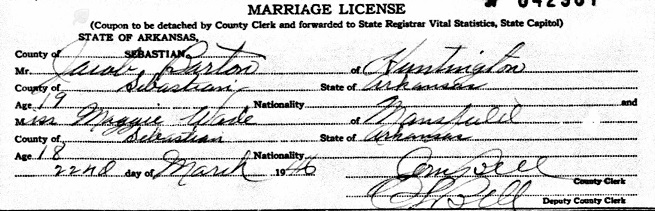 MARRIAGE LICENSE
(Coupon to be detached by County Clerk and forwarded to State Registrar Vital Statistics, State Capitol)
STATE OF ARKANSAS,
County of SEBASTIAN
Mr. Jacob Burton of Huntington
County of Sebastian State of Arkansas
Age 19 Nationality and
Miss Maggie Wade of Mansfield
County of Sebastian State of Arkansas
Age 18 Nationality
22nd day of March 1946 Bell County Clerk
Bell Deputy County Clerk